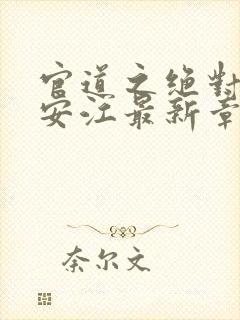 官道之绝对
安江最新章
奈尔文